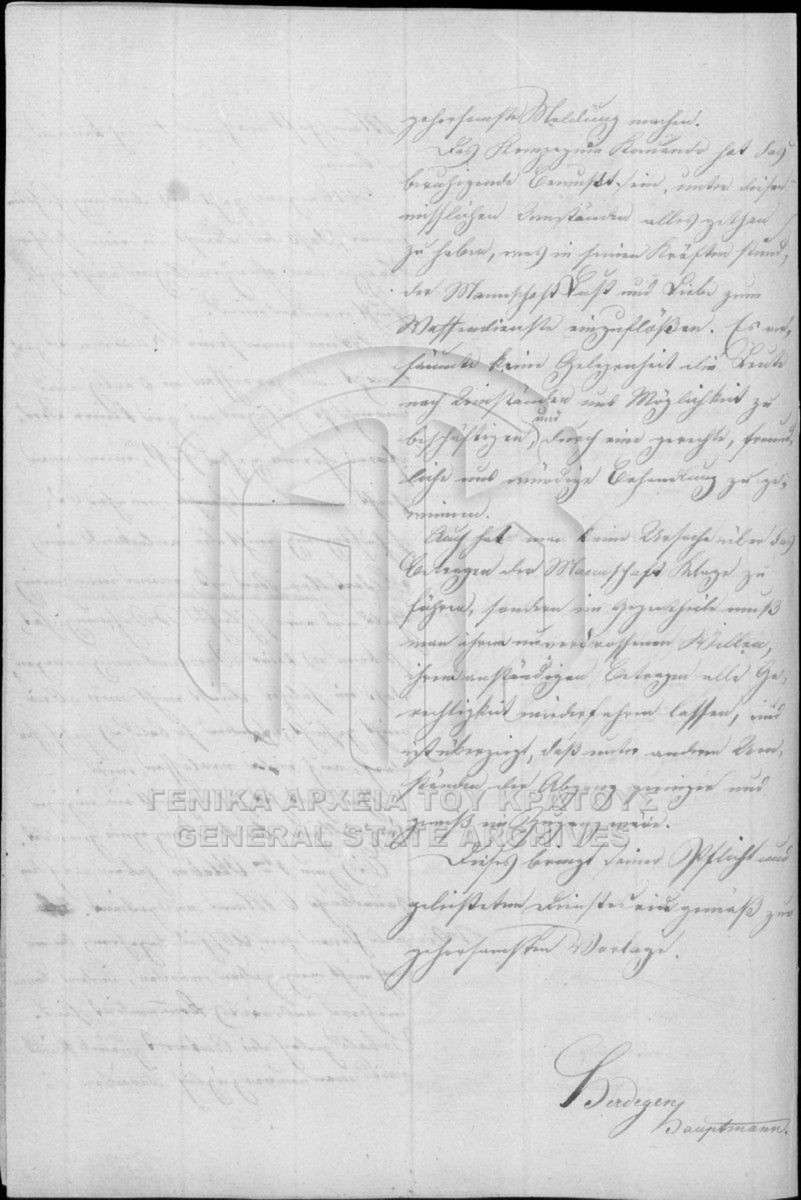 gehorsamste Meldung machen.
Das Kompagnie Komando hat das
beruhigende Bewußtsein, unter diesen
misslichen Umständen alles gethan
zu haben, was in seinen Kräften stund,
der Mannschaft Lust und Liebe zum
Waffendienste einzuflößen. Es ver-
säumte keine Gelegenheit die Leute
nach Umständen und Möglichkeit zu
beschäftigen, und durch eine gerechte, freund-
liche und würdige Behandlung zu ge-
winnen.
Auch hat man keine Ursache über das
Betragen der Mannschaft Klage zu
führen, sondern im Gegentheile muß
man ihrem unverdrossenen Willen,
ihrem anständigen Betragen alle Ge-
rechtigkeit wiederfahren lassen, und
ist überzeugt, daß unter andern Um-
ständen der Abgang geringer und
gewiß im
Dieses bringt seiner Pflicht und
geleisteten Diensteseid gemäß zur
gehorsamsten Vorlage.
Herdegen
Hauptmann.
ΓΕΝΙΚΑ ΑΡΧΕΙΑ ΤΟΥ ΚΡΑΤΟΥΣ
GENERAL STATE ARCHIVES